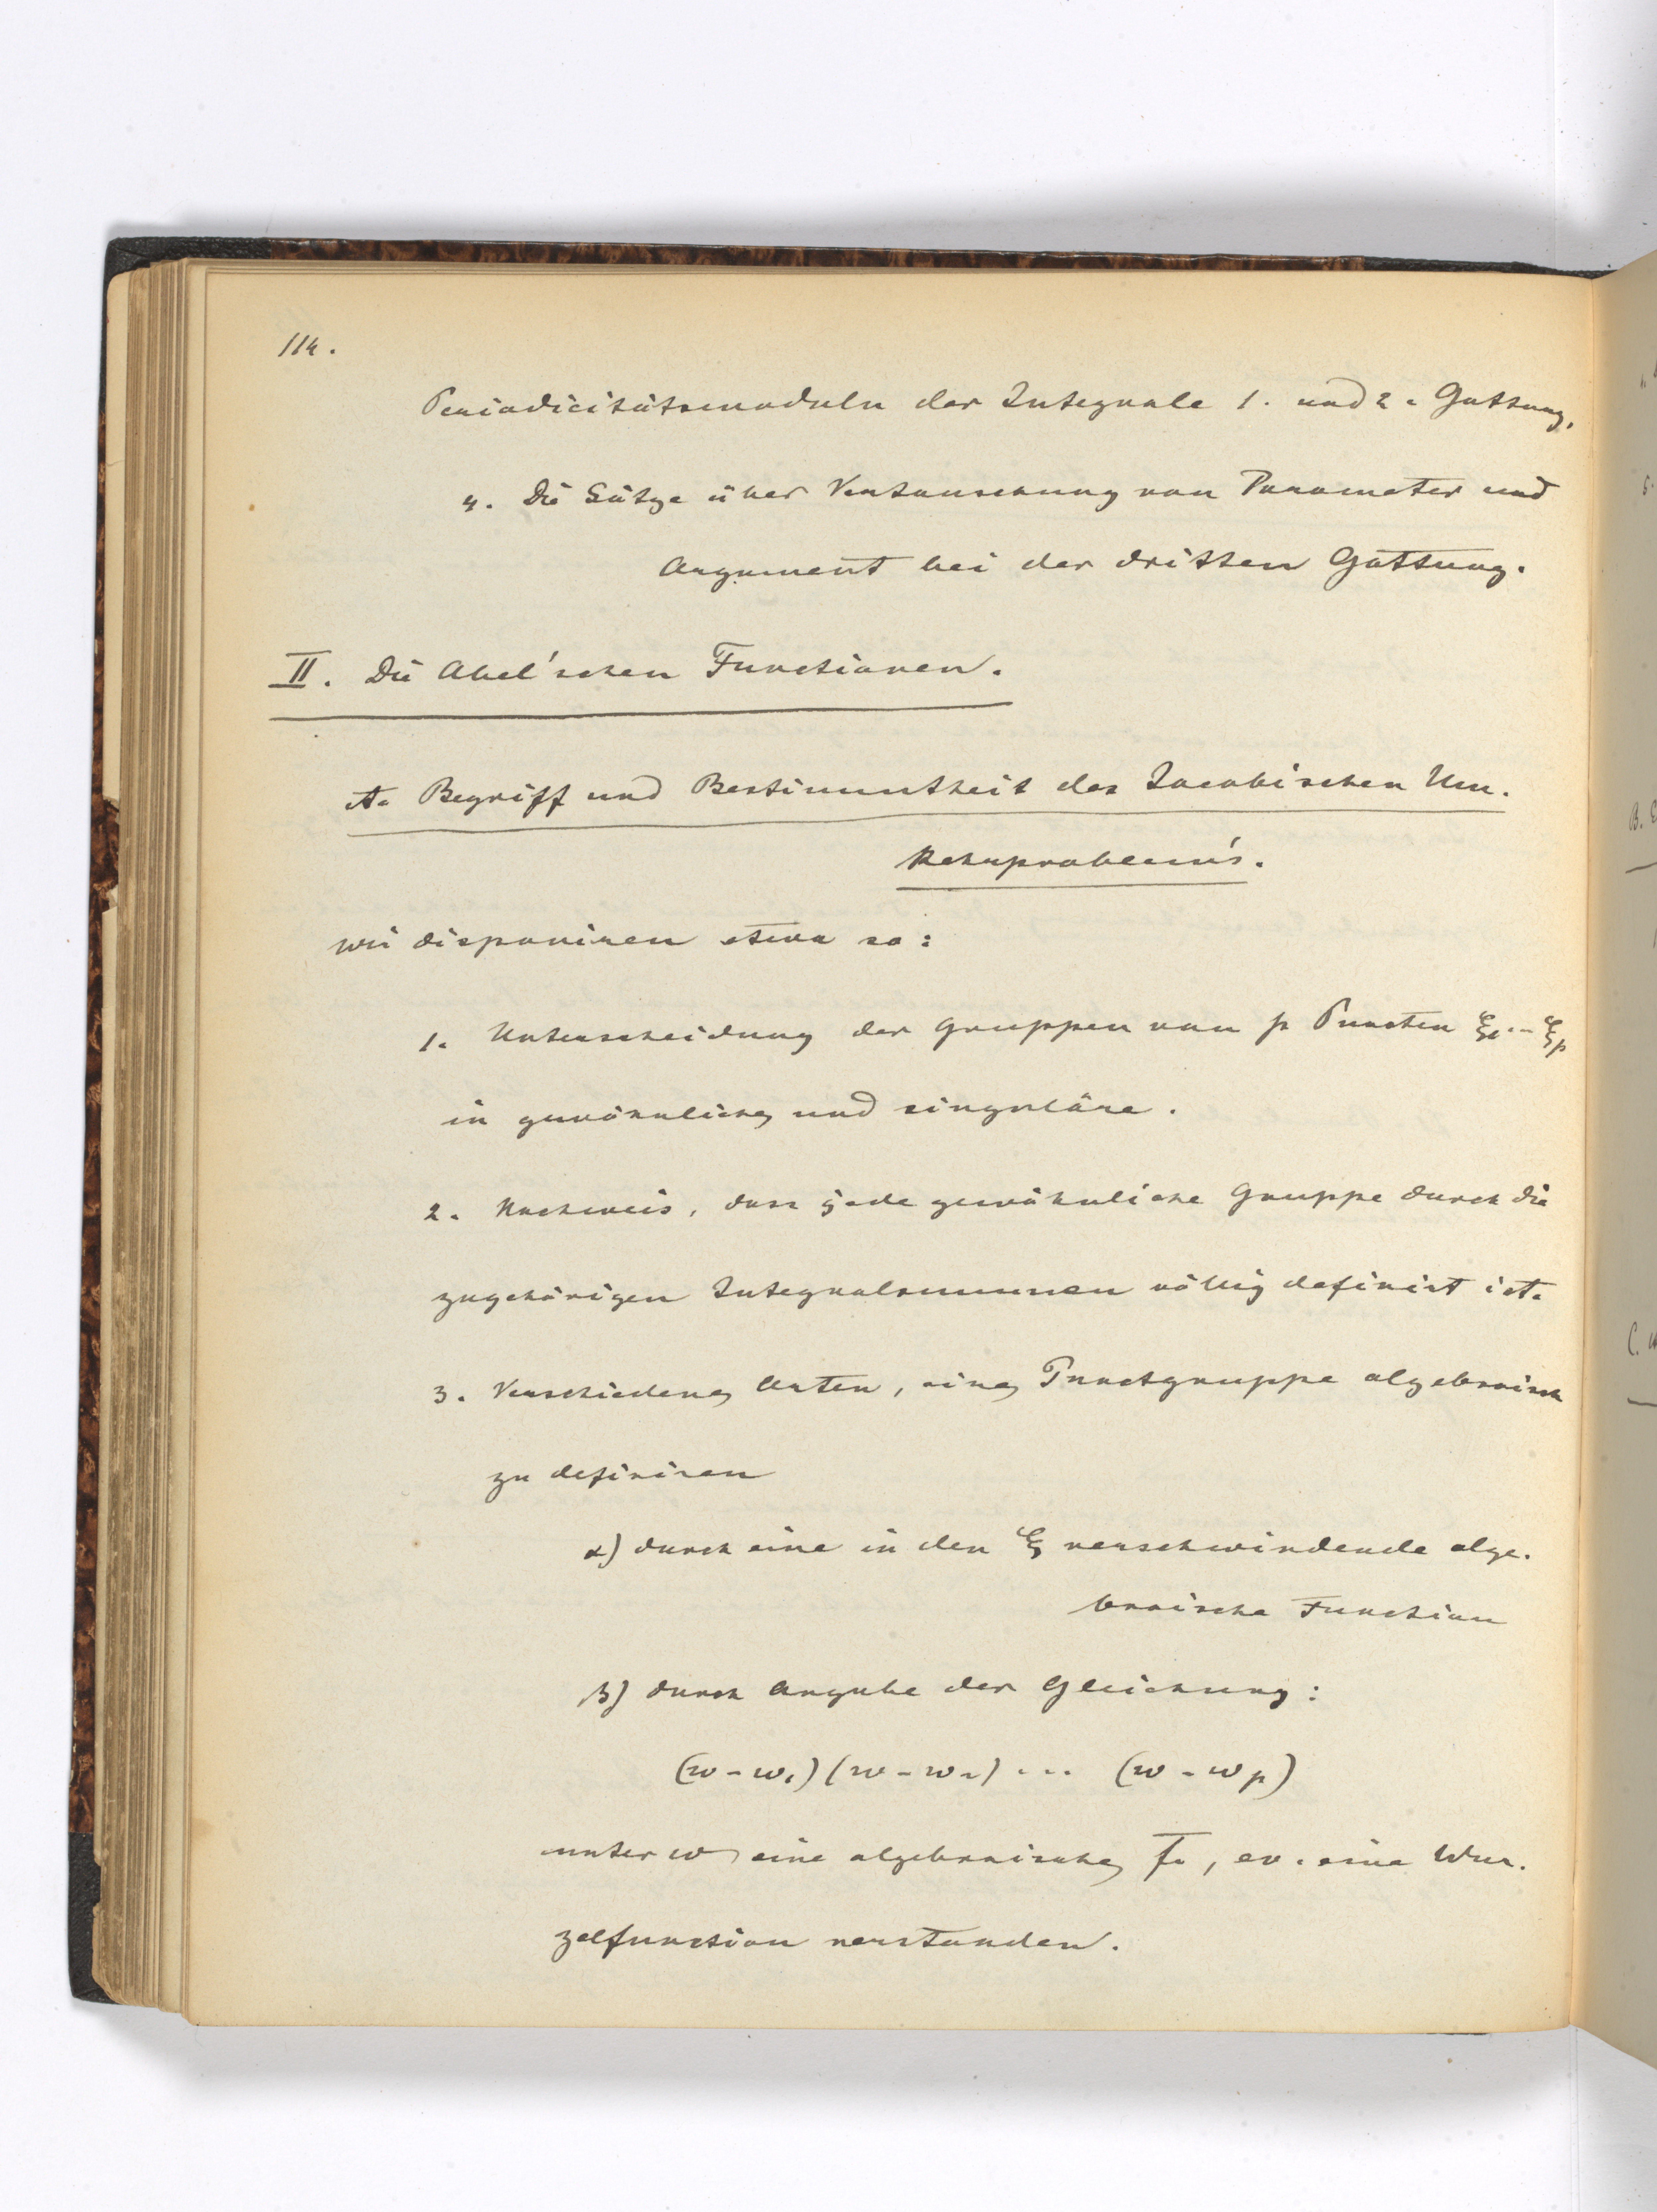 114.
Periodicitätsmoduln der Integrale 1. und 2. Gattung,
4. Die Sätze über Vertauschung von Parameter und
Argument bei der dritten Gattung.
II. Die Abel'schen Functionen.
A. Begriff und Bestimmtheit des Jacobischen Um-
kehrproblem's.
Wir disponiren etwa so:
1. Unterscheidung der Gruppen von p Puncten ξ₁...ξₚ
in gewöhnliche und singuläre.
2. Nachweis, dass jede gewöhnliche Gruppe durch die
zugehörigen Integralsummen völlig definirt ist.
3. Verschiedene Arten, eine Punctgruppe algebraisch
zu definiren
α) durch eine in den ξ verschwindende alge-
braische Function
β) durch Angabe der Gleichung:
(w-w₁)(w-w₂)... (w-wₚ)
unter w eine algebraische F., ev. eine Wur-
zelfunction verstanden.
B.
C.